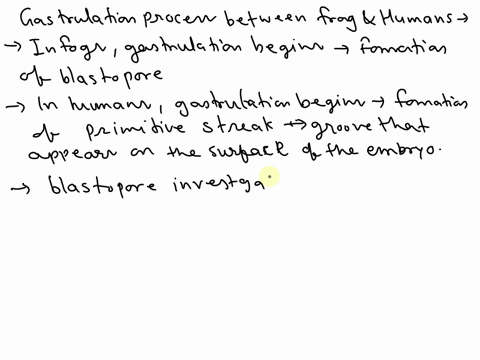 Gastrulation process between frog & Humans →
→ In fogr, gastrulation begins → fomation
of blastopore
→ In humans, gastrulation begins → fomation
of primitive streak ↔ groove that
appears on the surface of the embryo.
→ blastopore investga